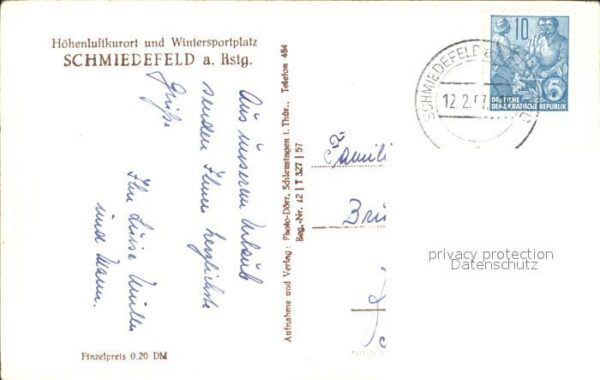 Höhenluftkurort und Wintersportplatz
SCHMIEDEFELD a. Rstg.
Aus unserem Urlaub
senden Ihnen herzlichste
Grüße
Ihre Luise Müller
und Mann.
Einzelpreis 0.20 DM
Aufnahme und Verlag: Photo-Dörr, Schleusingen i. Thür., Telefon 454
Beg.-Nr. 12 | T 327 | 57
Famili
Brü
SCHMIEDEFELD
12.2.57
10
5
DEUTSCHE
DEMOKRATISCHE REPUBLIK
privacy protection
Datenschutz